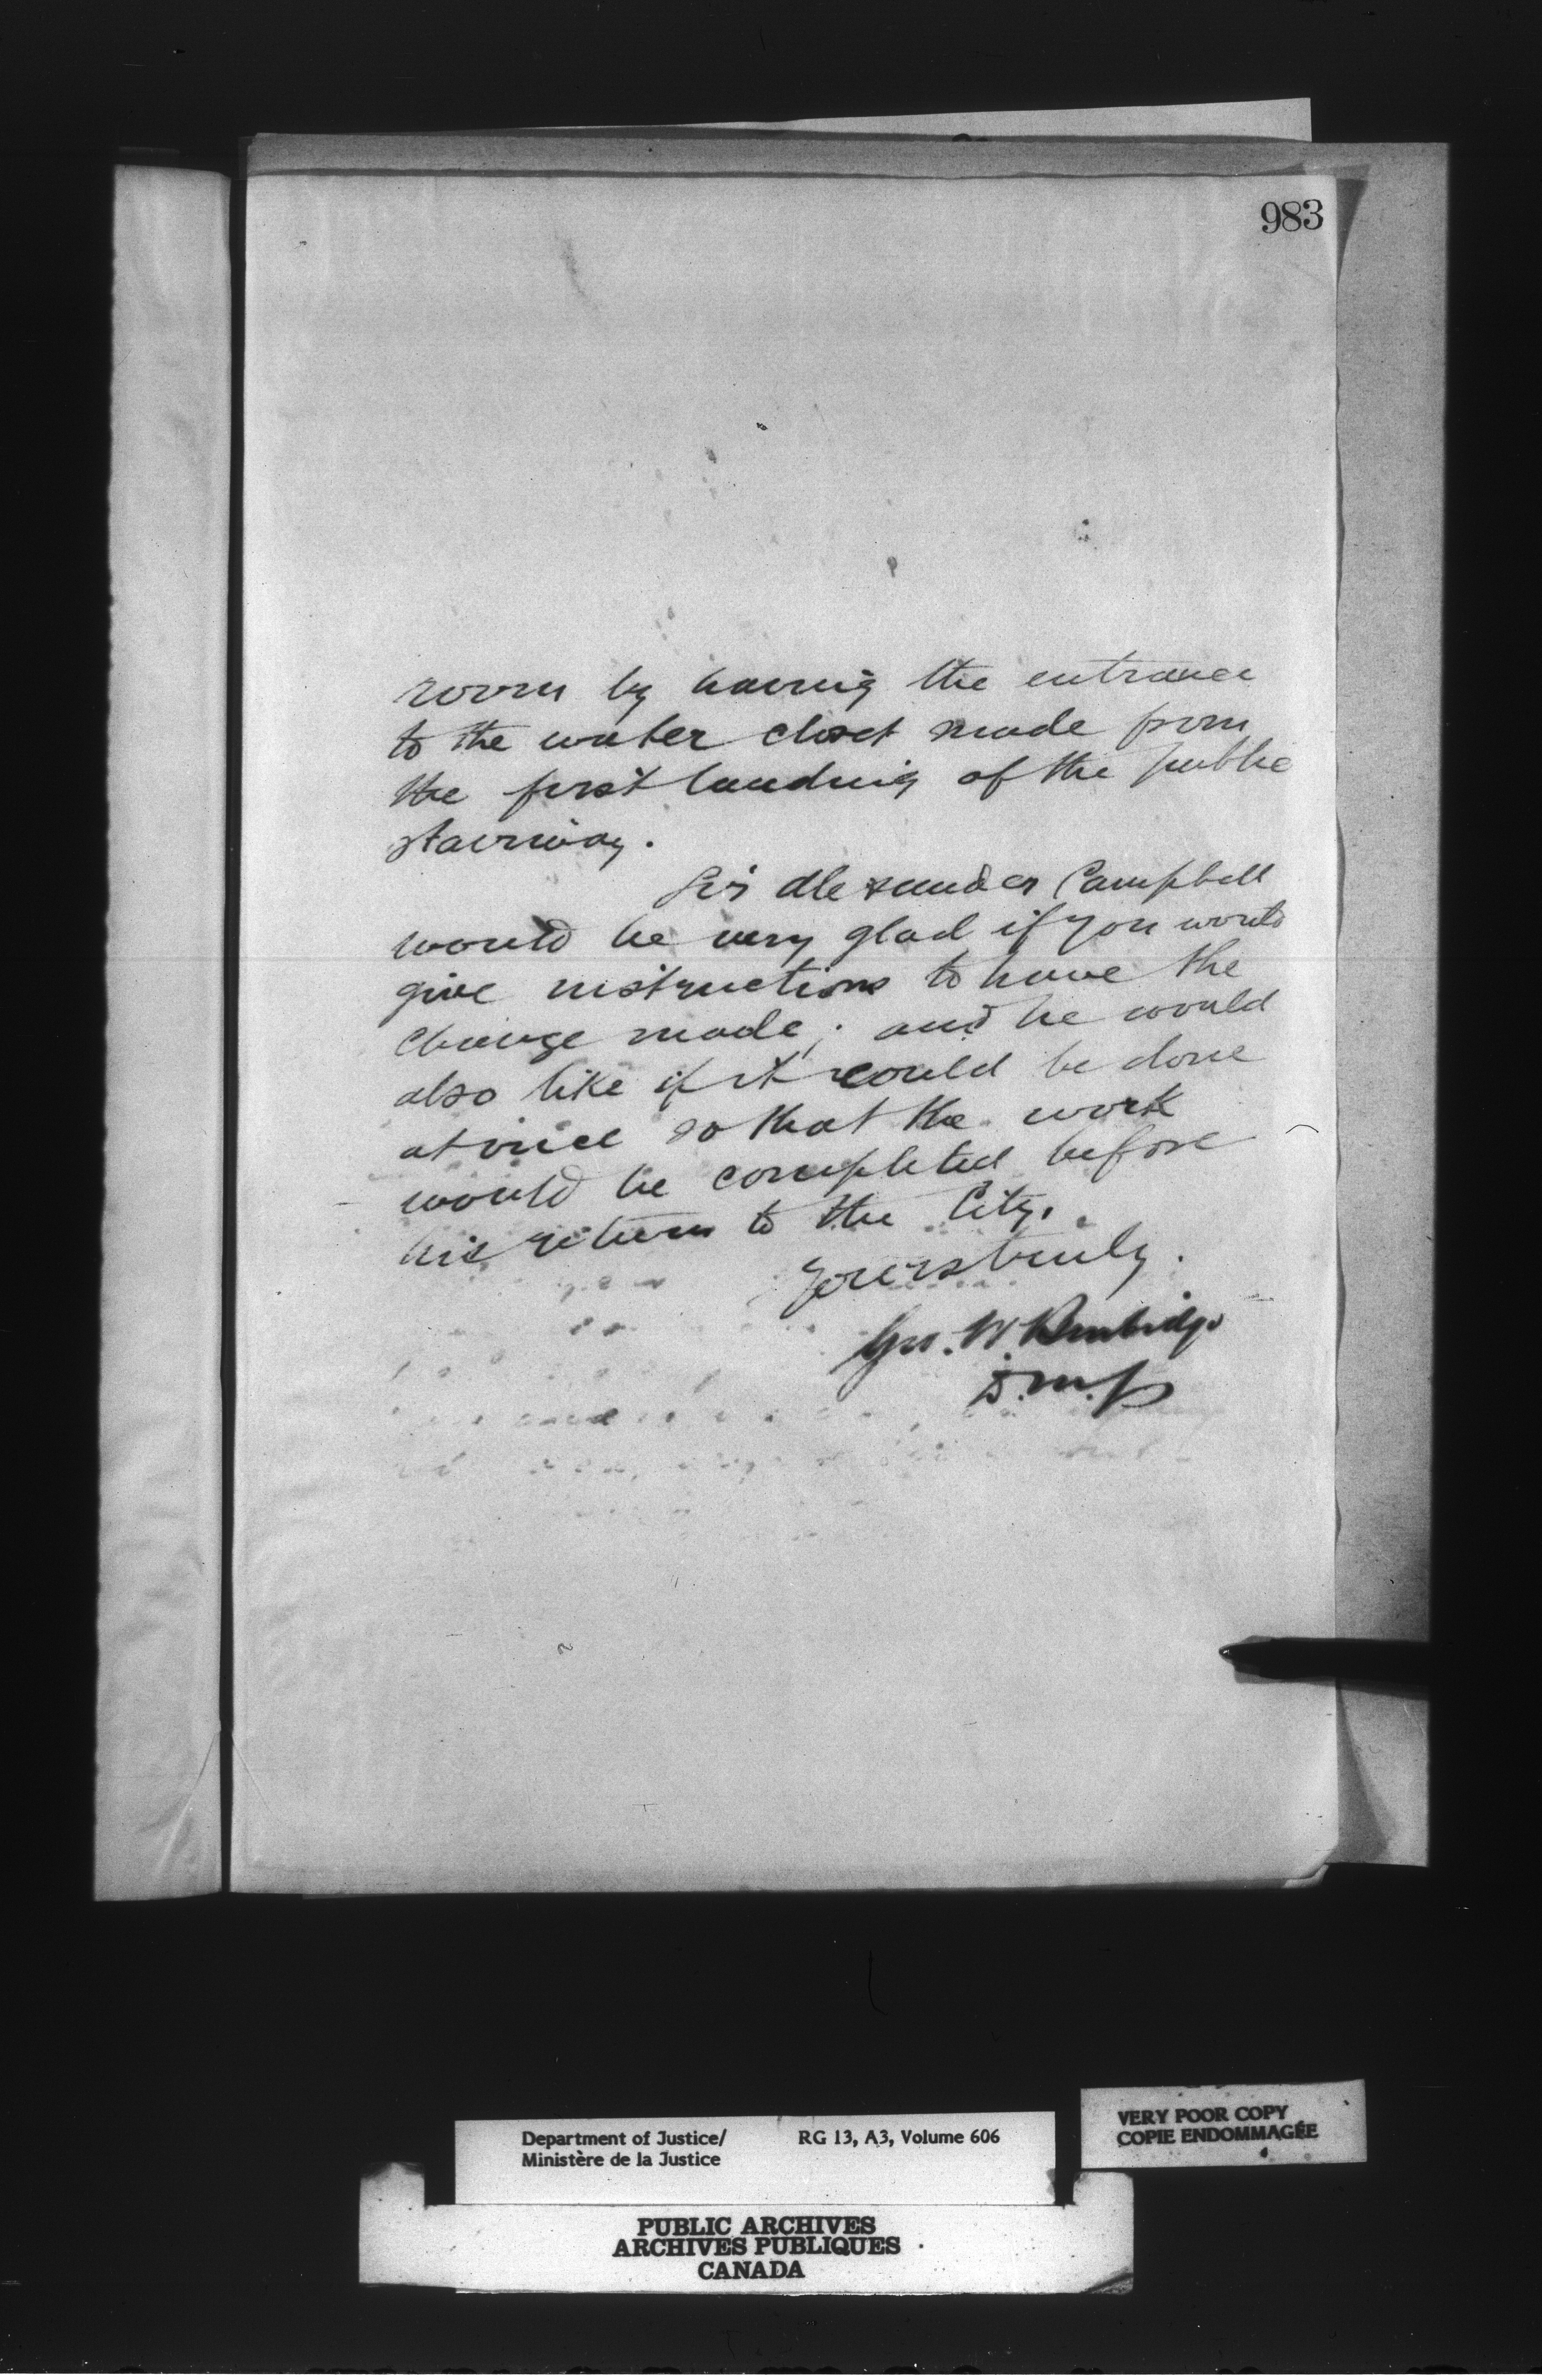 983
room by having the entrance
to the water closet made from
the first landing of the public
stairway.
Sir Alexander Campbell
would be very glad if you would
give instructions to have the
change made; and he would
also like if it could be done
at once so that the work
would be completed before
his return to the City.
Yours truly.
Geo. W. Burbidge
D.M.J.
Department of Justice/ RG 13, A3, Volume 606
Ministère de la Justice
VERY POOR COPY
COPIE ENDOMMAGÉE
PUBLIC ARCHIVES
ARCHIVES PUBLIQUES
CANADA